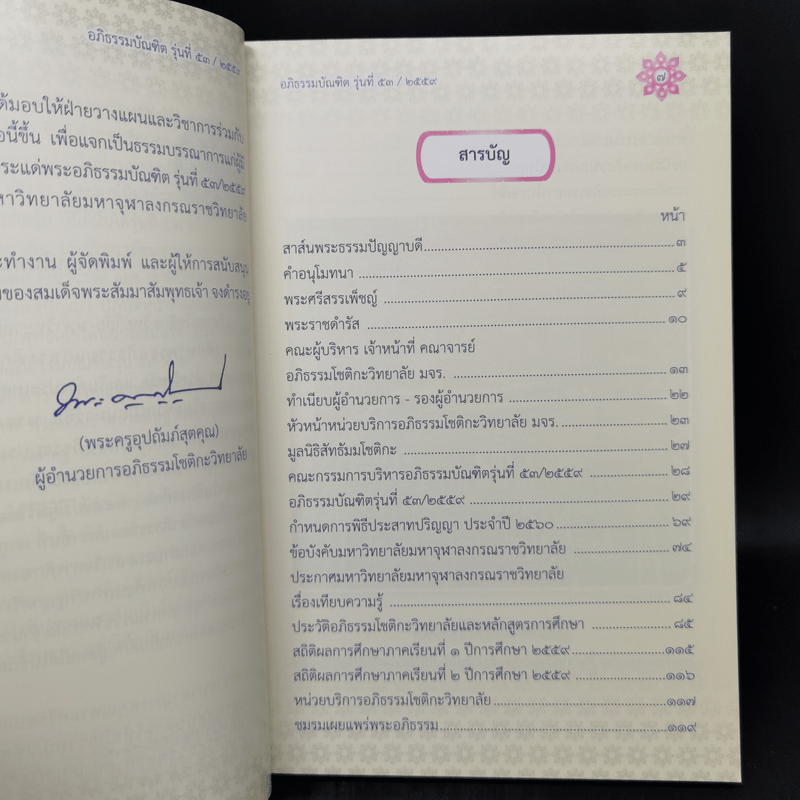 อภิธรรมบัณฑิต รุ่นที่ ๕๓ / ๒๕๕๙
มอบให้ฝ่ายวางแผนและวิชาการร่วมกับ
ขึ้น เพื่อแจกเป็นธรรมบรรณาการแก่ผู้มี
แด่พระอภิธรรมบัณฑิต รุ่นที่ ๕๓/๒๕๕๙
วิทยาลัยมหาจุฬาลงกรณราชวิทยาลัย
ทำงาน ผู้จัดพิมพ์ และผู้ให้การสนับสนุน
ของสมเด็จพระสัมมาสัมพุทธเจ้า จงดำรงอยู่
(พระครูอุปถัมภ์สุตคุณ)
ผู้อำนวยการอภิธรรมโชติกะวิทยาลัย
อภิธรรมบัณฑิต รุ่นที่ ๕๓ / ๒๕๕๙
๗
สารบัญ
หน้า
สาส์นพระธรรมปัญญาบดี ๓
คำอนุโมทนา ๕
พระศรีสรรเพ็ชญ์ ๙
พระราชดำรัส ๑๐
คณะผู้บริหาร เจ้าหน้าที่ คณาจารย์
อภิธรรมโชติกะวิทยาลัย มจร. ๑๓
ทำเนียบผู้อำนวยการ - รองผู้อำนวยการ ๒๒
หัวหน้าหน่วยบริการอภิธรรมโชติกะวิทยาลัย มจร. ๒๓
มูลนิธิสัทธัมมโชติกะ ๒๗
คณะกรรมการบริหารอภิธรรมบัณฑิตรุ่นที่ ๕๓/๒๕๕๙ ๒๘
อภิธรรมบัณฑิตรุ่นที่ ๕๓/๒๕๕๙ ๒๙
กำหนดการพิธีประสาทปริญญา ประจำปี ๒๕๖๐ ๖๙
ข้อบังคับมหาวิทยาลัยมหาจุฬาลงกรณราชวิทยาลัย ๗๔
ประกาศมหาวิทยาลัยมหาจุฬาลงกรณราชวิทยาลัย
เรื่องเทียบความรู้ ๘๔
ประวัติอภิธรรมโชติกะวิทยาลัยและหลักสูตรการศึกษา ๘๕
สถิติผลการศึกษาภาคเรียนที่ ๑ ปีการศึกษา ๒๕๕๙ ๑๑๕
สถิติผลการศึกษาภาคเรียนที่ ๒ ปีการศึกษา ๒๕๕๙ ๑๑๖
หน่วยบริการอภิธรรมโชติกะวิทยาลัย ๑๑๗
ชมรมเผยแพร่พระอภิธรรม ๑๑๙